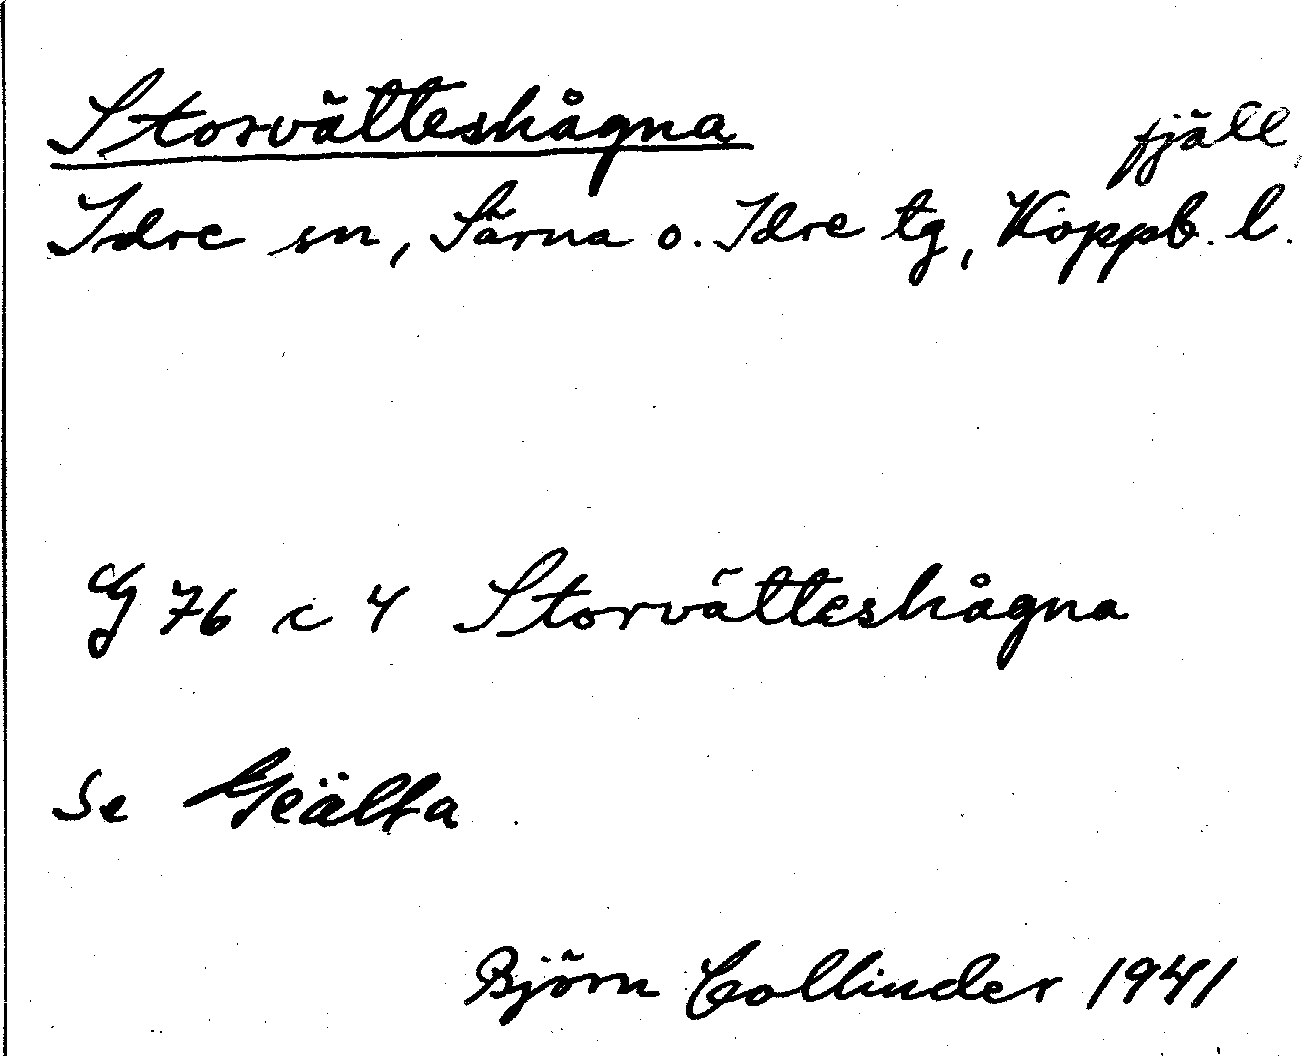 Storvätteshågna fjäll
Idre sn, Särna o. Idre tg, Koppb. l.
G 76 c 4 Storvätteshågna
Se Geälta
Björn Collinder 1941